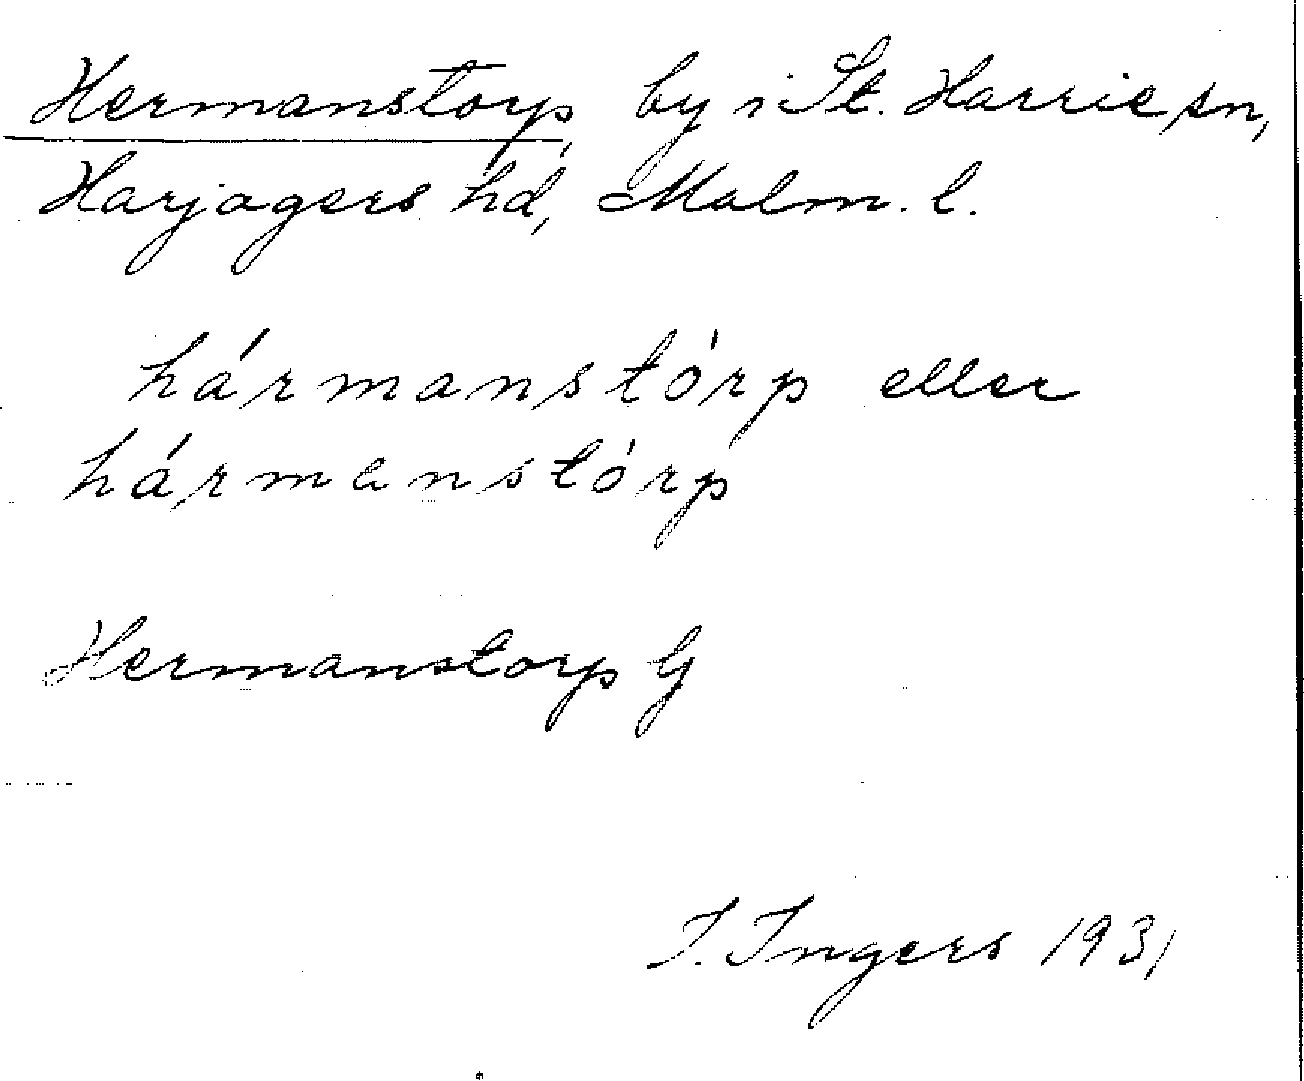 Hermanstorp, by i St. Harrie sn,
Harjagers hd, Malm. l.
hármanstórp eller
hármanstórp
Hermanstorp G
I. Ingers 1931